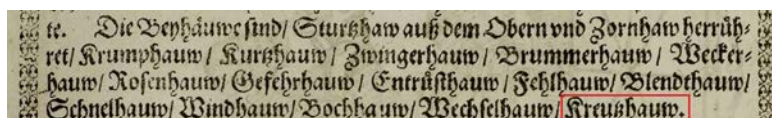 te. Die Beyhäuwe sind/ Sturtzhaw auß dem Obern vnd Zornhaw herrüh-
ret/ Krumphauw/ Kurtzhauw/ Zwingerhauw/ Brummerhauw/ Wecker-
hauw/ Rosenhauw/ Gefehrhauw/ Entrüsthauw/ Fehlhauw/ Blendthauw/
Schnelhauw/ Windhauw/ Bochhauw/ Wechselhauw/ Kreutzhauw.